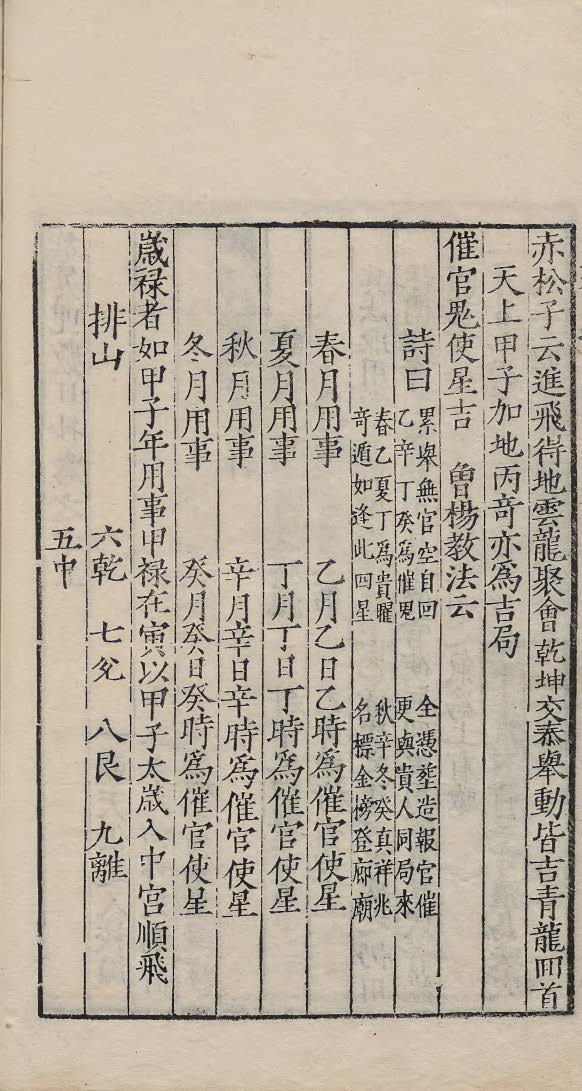 赤松子云進飛得地雲龍聚會乾坤交泰舉動皆吉青龍囬首
天上甲子加地丙竒亦爲吉局
催官鬼使星吉　曾楊教法云
詩曰　累舉無官空自回　全憑塟造報官催
乙辛丁癸爲催鬼　更與貴人同局來
春乙夏丁爲貴曜　秋辛冬癸真祥兆
竒遁如逢此四星　名標金榜登廊廟
春月用事　乙月乙日乙時爲催官使星
夏月用事　丁月丁日丁時爲催官使星
秋月用事　辛月辛日辛時爲催官使星
冬月用事　癸月癸日癸時爲催官使星
歲禄者如甲子年用事甲禄在寅以甲子太歲入中宫順飛
排山　六乾　七兊　八艮　九離
五中